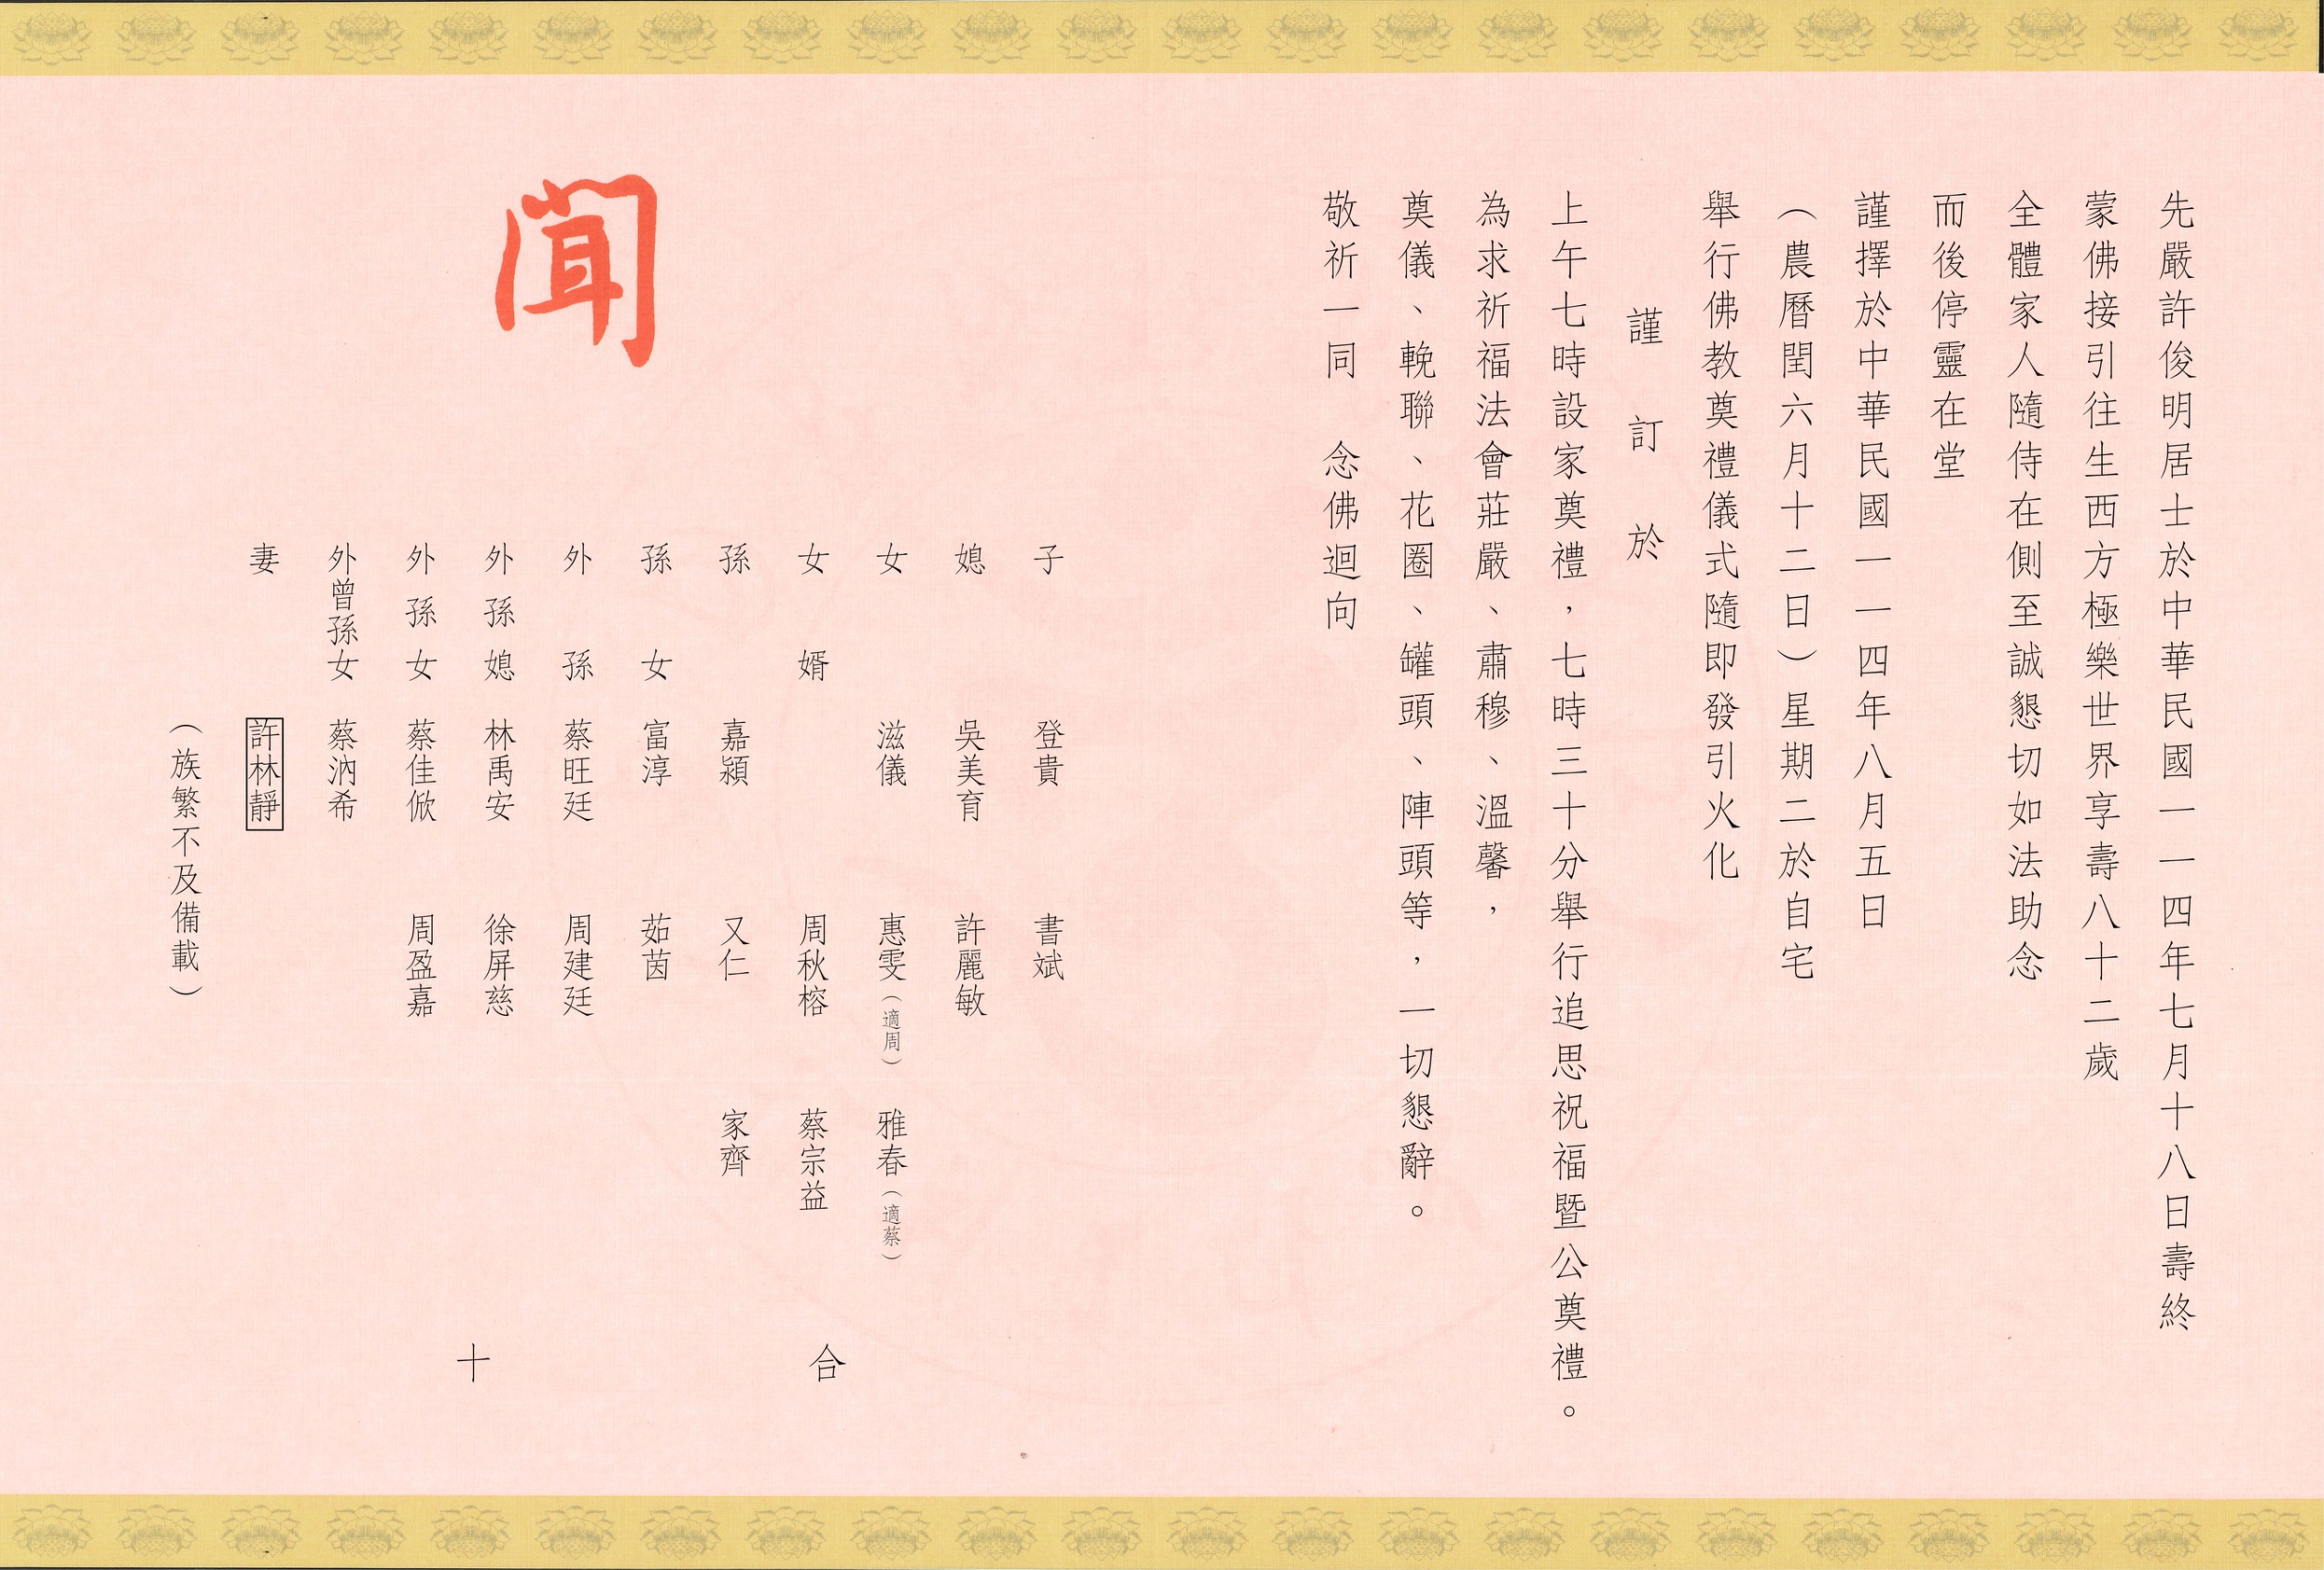 先嚴許俊明居士於中華民國一一四年七月十八日壽終
蒙佛接引往生西方極樂世界享壽八十二歲
全體家人隨侍在側至誠懇切如法助念
而後停靈在堂
謹擇於中華民國一一四年八月五日
（農曆閏六月十二日）星期二於自宅
舉行佛教奠禮儀式隨即發引火化
謹訂於
上午七時設家奠禮，七時三十分舉行追思祝福暨公奠禮。
為求祈福法會莊嚴、肅穆、溫馨，
奠儀、輓聯、花圈、罐頭、陣頭等，一切懇辭。
敬祈一同　念佛迴向
聞
子　登貴　書斌
媳　吳美育　許麗敏
女　滋儀　惠雯（適周）　雅春（適蔡）
女婿　周秋榕　蔡宗益
孫　嘉潁　又仁　家齊
孫女　富淳　茹茵
外孫　蔡旺廷　周建廷
外孫媳　林禹安　徐屏慈
外孫女　蔡佳俽　周盈嘉
外曾孫女　蔡汭希
妻　許林靜
（族繁不及備載）
合十